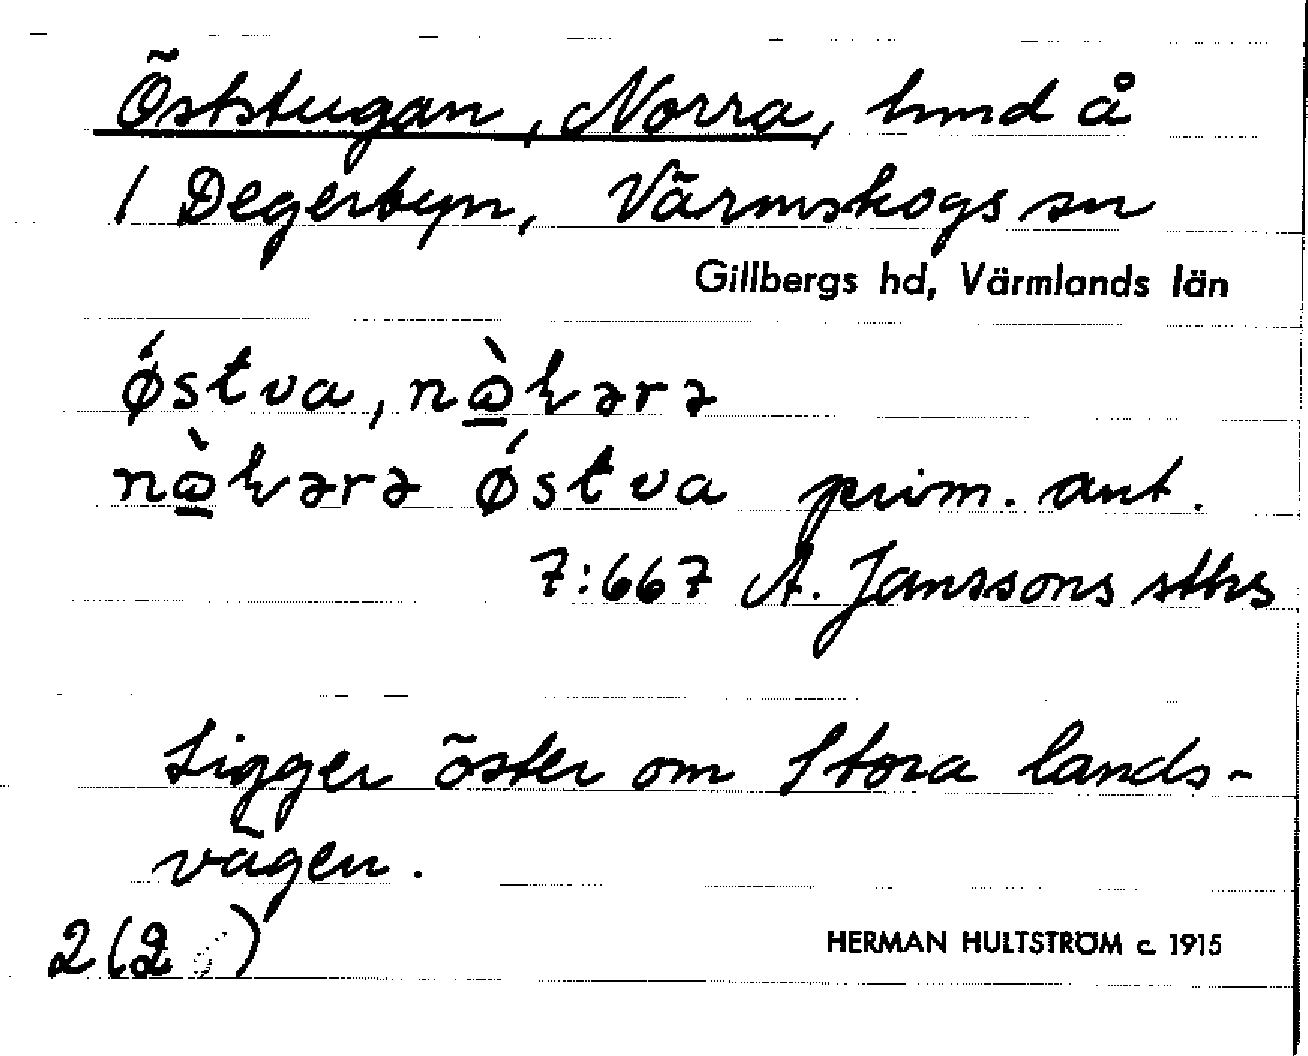 Öststugan, Norra, hmd å
1 Degerbyn, Värmskogs sn
Gillbergs hd, Värmlands län
ǿstva,
ǿstva prim. ant.
7:667 A. Janssons sths
Ligger öster om Stora lands-
vägen.
2(2 )
HERMAN HULTSTRÖM c. 1915